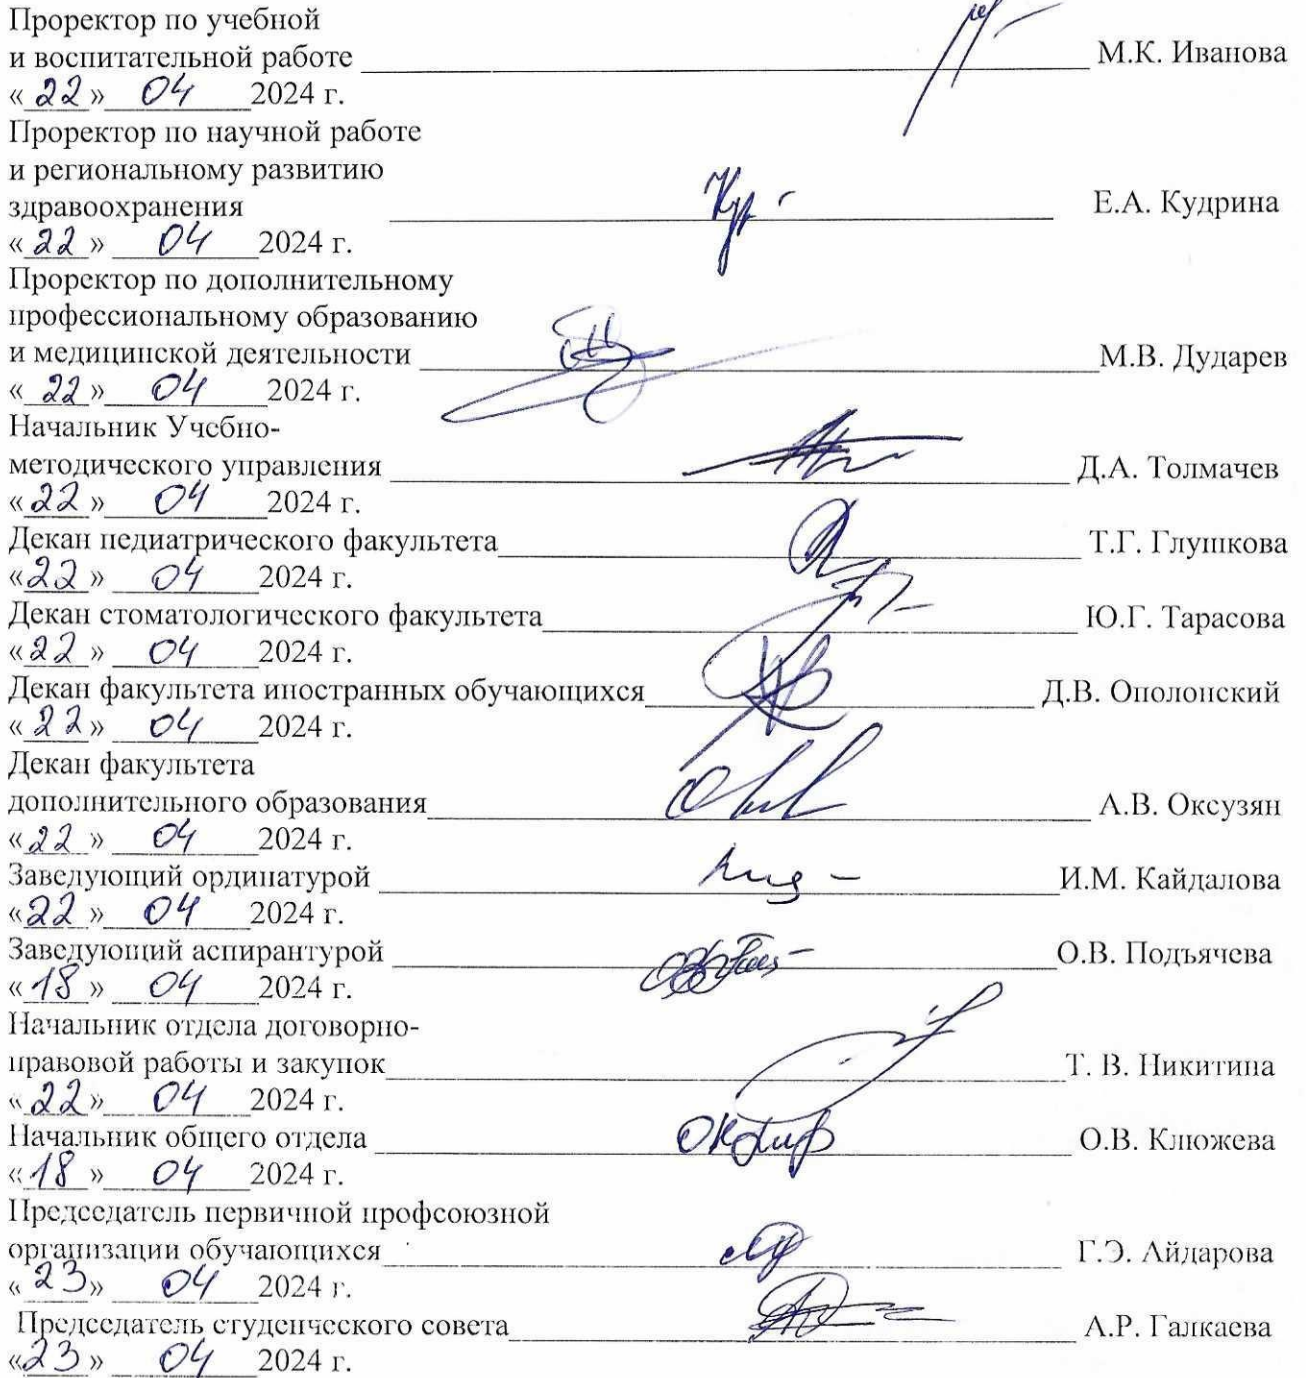 Проректор по учебной
и воспитательной работе М.К. Иванова
«22» 04 2024 г.
Проректор по научной работе
и региональному развитию
здравоохранения Е.А. Кудрина
«22» 04 2024 г.
Проректор по дополнительному
профессиональному образованию
и медицинской деятельности М.В. Дударев
«22» 04 2024 г.
Начальник Учебно-
методического управления Д.А. Толмачев
«22» 04 2024 г.
Декан педиатрического факультета Т.Г. Глушкова
«22» 04 2024 г.
Декан стоматологического факультета Ю.Г. Тарасова
«22» 04 2024 г.
Декан факультета иностранных обучающихся Д.В. Ополонский
«22» 04 2024 г.
Декан факультета
дополнительного образования А.В. Оксузян
«22» 04 2024 г.
Заведующий ординатурой И.М. Кайдалова
«22» 04 2024 г.
Заведующий аспирантурой О.В. Подъячева
«18» 04 2024 г.
Начальник отдела договорно-
правовой работы и закупок Т. В. Никитина
«22» 04 2024 г.
Начальник общего отдела О.В. Клюжева
«18» 04 2024 г.
Председатель первичной профсоюзной
организации обучающихся Г.Э. Айдарова
«23» 04 2024 г.
Председатель студенческого совета А.Р. Галкаева
«23» 04 2024 г.